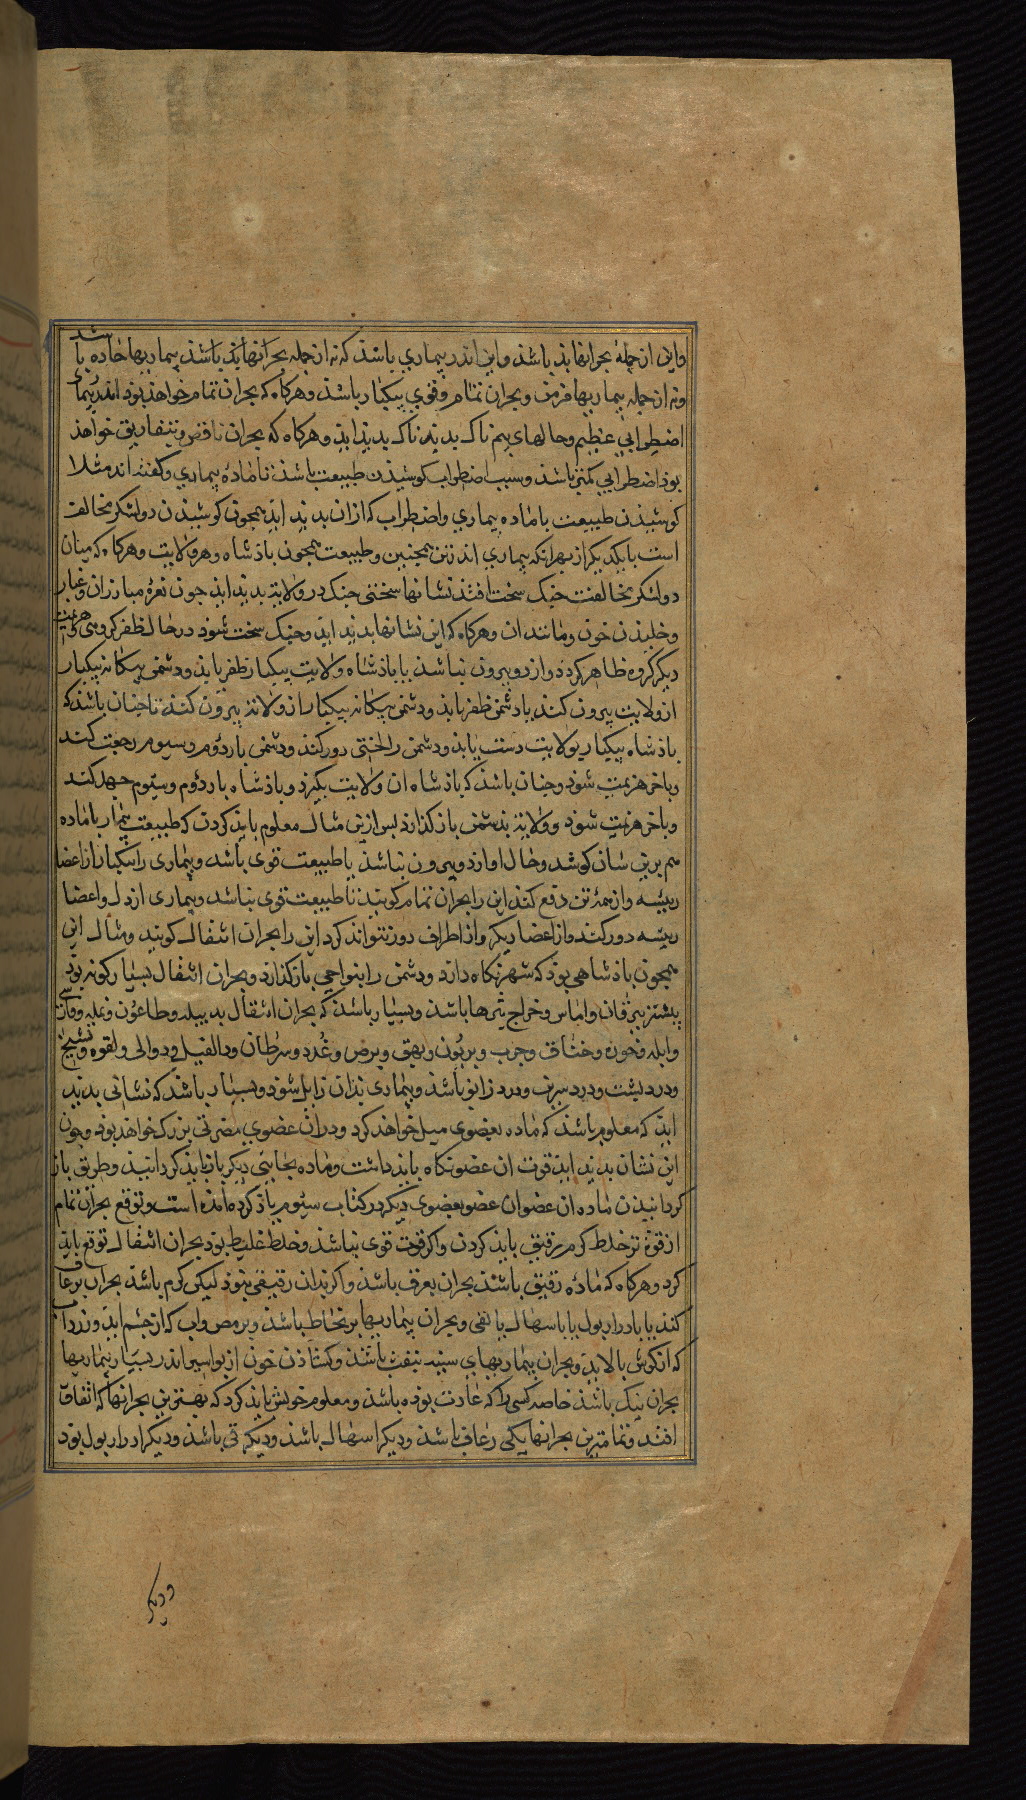 واین از جمله بحرانها بذ باشذ واین اندر بیماری باشذ که نه از جمله بحرانها بذ باشذ بیماریها حاده باشد
ونه از جمله بیماریها مزمن وبحران تمام وقوی بیکبار باشذ وهرکاه که بحران تمام خواهذ بوذ اندر بیماری
اضطرابی عظیم وحالهای بیم ناک بدیذ ناک بدیذ ایذ وهرکاه که بحران ناقص وبتفاریق خواهذ
بوذ اضطرابی کمتر باشذ وسبب اضطراب کوشیذن طبیعت باشذ تا ماده بیماری وکفته اند مثلا
کوشیذن طبیعت با ماده بیماری واضطراب که ازان بدیذ ایذ همچون کوشیذن دو لشکر مخالف
است با یکدیکر از بهر انکه بیماری اندر تن همچنین وطبیعت همچون باذشاه وهر ولایت وهرکاه که میان
دو لشکر مخالفت جنک سخت افتذ نشانها سختی جنک در ولایت بدیذ ایذ چون نعره مبارزان وغبار
وخلیذن خون ومانند ان وهرکاه که این نشانها بدیذ ایذ وجنک سخت شوذ در حال ظفر کروهی وهزیمت
دیکر کروه ظاهر کردذ واز دو بیرون نباشذ یا باذشاه ولایت بیکبار ظفر یابذ ودشمن بیکانه بیکبار
از ولایت بیرون کند یا دشمن ظفر یابذ ودشمن بیکانه بیکبار از ولایت بیرون کنذ تا چنان باشذ که
باذشاه بیکبار بولایت دست یابذ ودشمن را لختی دور کنذ ودشمن بار دوم وسیوم رجعت کند
وباخر هزیمت شوذ وچنان باشذ که باذشاه ان ولایت بکیرذ وباذشاه بار دوم وسیوم جهد کند
وباخر هزیمت شوذ وولایت بدشمن باز کذارذ بس ازین مثال معلوم بایذ کردن که طبیعت بیمار با ماده
هم برین سان کوشد وحال او از دو بیرون نباشذ یا طبیعت قوی باشد وبیماری را بیکبار از اعضا
رییسه واز همه تن دفع کند این را بحران تمام کویند تا طبیعت قوی نباشد وبیماری از دل واعضا
رییسه دور کند واز اعضا دیکر واز اطراف دور نتواند کرد این را بحران انتقال کویند ومثال این
همچون باذشاهی بوذ که شهر نکاه دارد ودشمن را بنواحی باز کذارد وبحران انتقال بسیار کونه بوذ
بیشتر یرقان واماس وخراج بثرها باشد وبسیار باشذ که بحران انتقال بدبیله وطاعون ونمله وفارسی
وابله وخون وخناق وجرب وبریون وبهق وبرص وغدد وسرطان ودا الفیل ودوالی ولقوه وتشنج
ودرد بشت ودرد سرین ودرد زانو باشذ وبیماری بذان زایل شوذ وبسیار باشذ که نشانی بدیذ
ایذ که معلوم باشذ که ماده بعضوی میل خواهذ کرد ودران عضوی مضرتی بزرک خواهذ بوذ وچون
این نشان بدیذ ایذ قوت ان عضو نکاه بایذ داشت وماده بجانبی دیکر باز بایذ کردانیذ وطریق باز
کردانیذن ماده ان عضو ان عضو بعضوی دیکر در کتاب سیوم یاذ کرده امذه است وتوقع بحران تمام
از قوة تر خلط کرم رقیق بایذ کردن واکر قوت قوی نباشذ وخلط غلیظ بوذ بحران انتقال توقع بایذ
کرد وهرکاه که ماده رقیق باشذ بحران بعرق باشذ واکر بذان رقیقی نبوذ لیکن کرم باشذ بحران برعاف
کند یا بادرار بول یا باسهال یا بقی وبحران بیماریها بر مخاط باشذ وبرمص واب که از چشم ایذ وزرداب
که از کوش بالایذ وبحران بیماریهای سینه بنفث باشذ وکشاذن خون از بواسیر اندر بسیار بیماریها
بحران نیک باشذ خاصه کسی را که عادت بوذه باشذ ومعلوم خویش بایذ کرد که بهترین بحرانها که اتفاق
افتد وتمامترین بحرانها یکی رعاف باشذ ودیکر اسهال باشذ ودیکر قی باشذ ودیکر ادرار بول بوذ
ودیکر